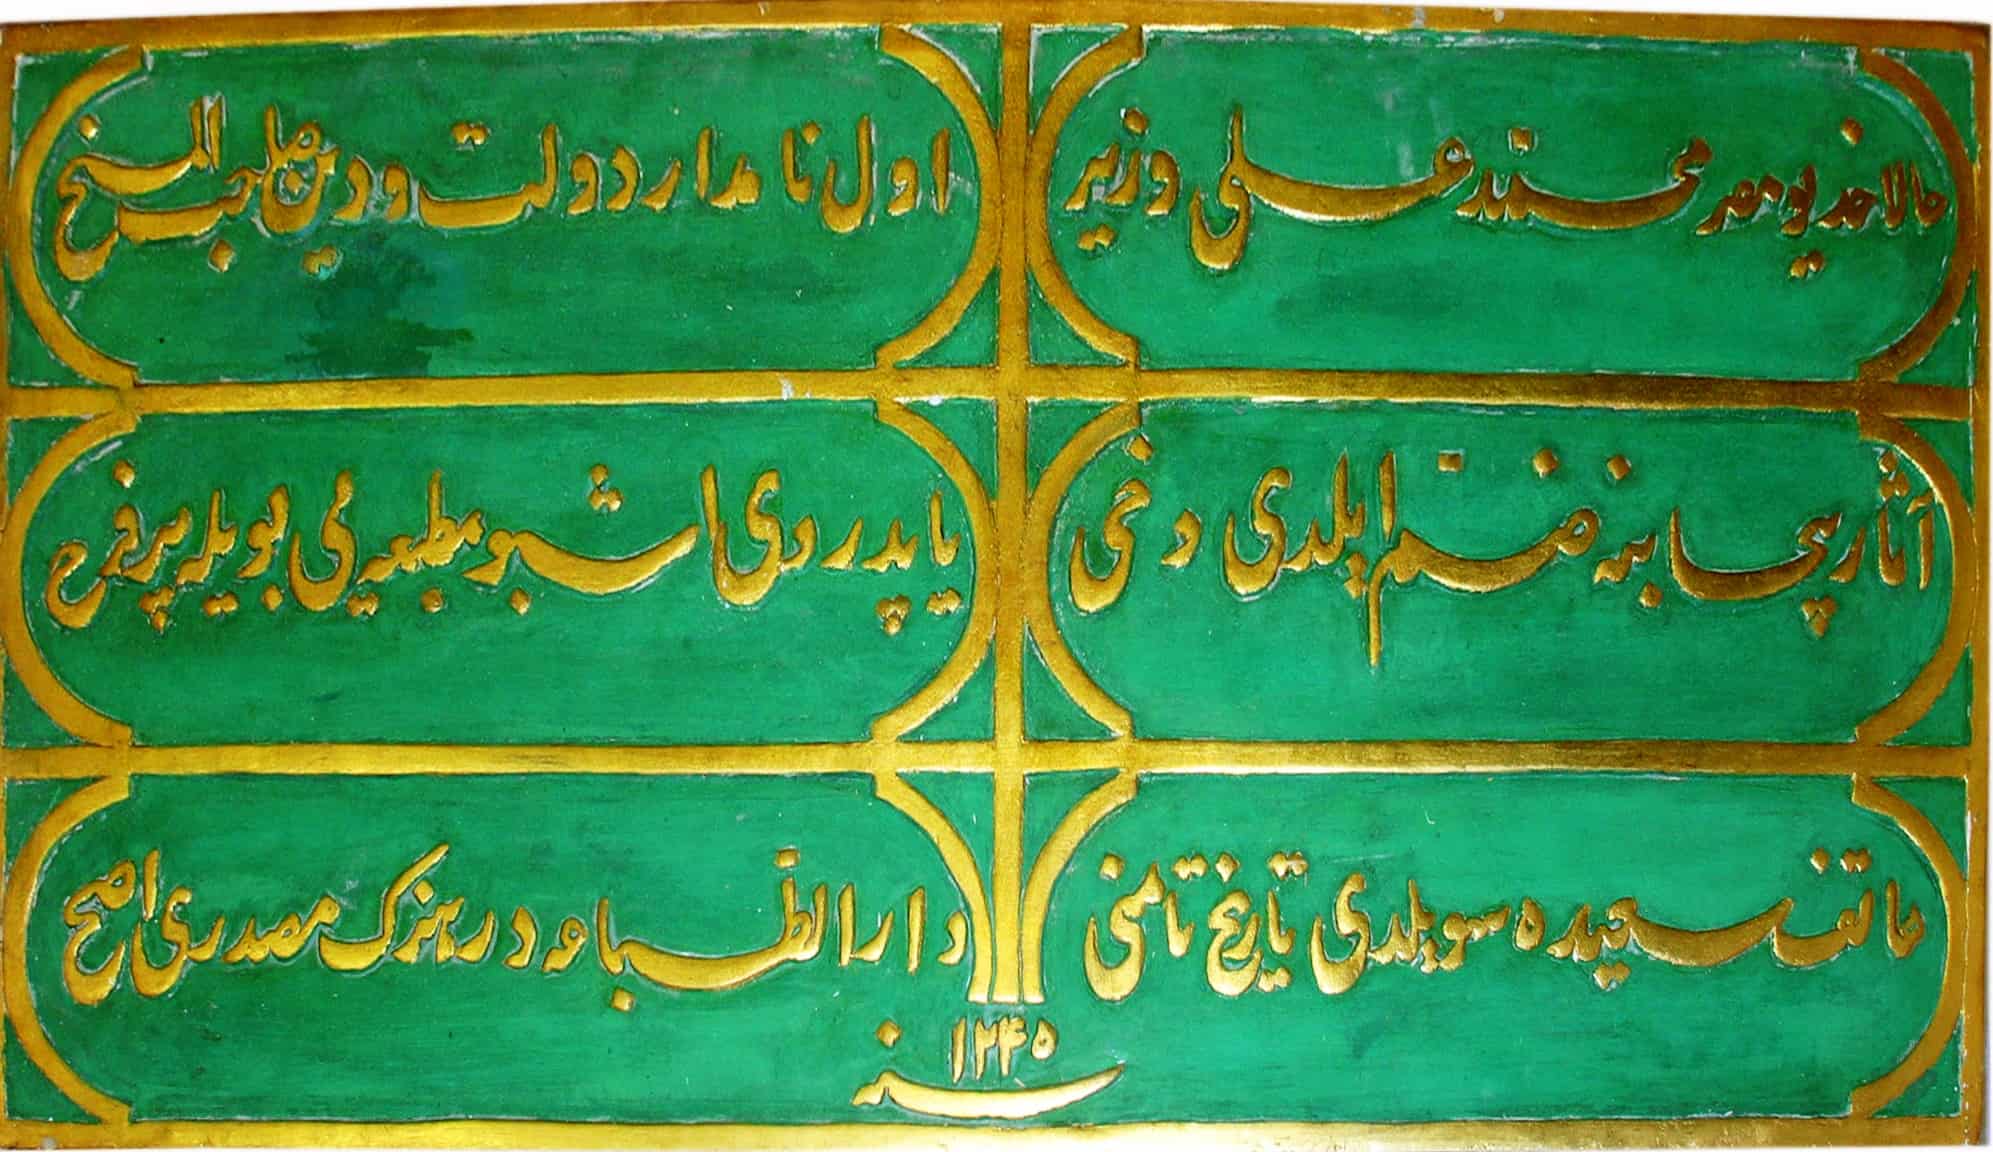 حالا خديو مصر محمد علی وزیر
اول نامدار دولت و دین صاحب المنح
آثار بیحسابنه ضم ایلدی دخی
یاپدردی اشبو مطبعه‌یی بویله پر فرح
سعیده سویلدی تاریخ تامنی
دار الطباعه در هنرك مصدری اصح
سنه ١٢٣٥